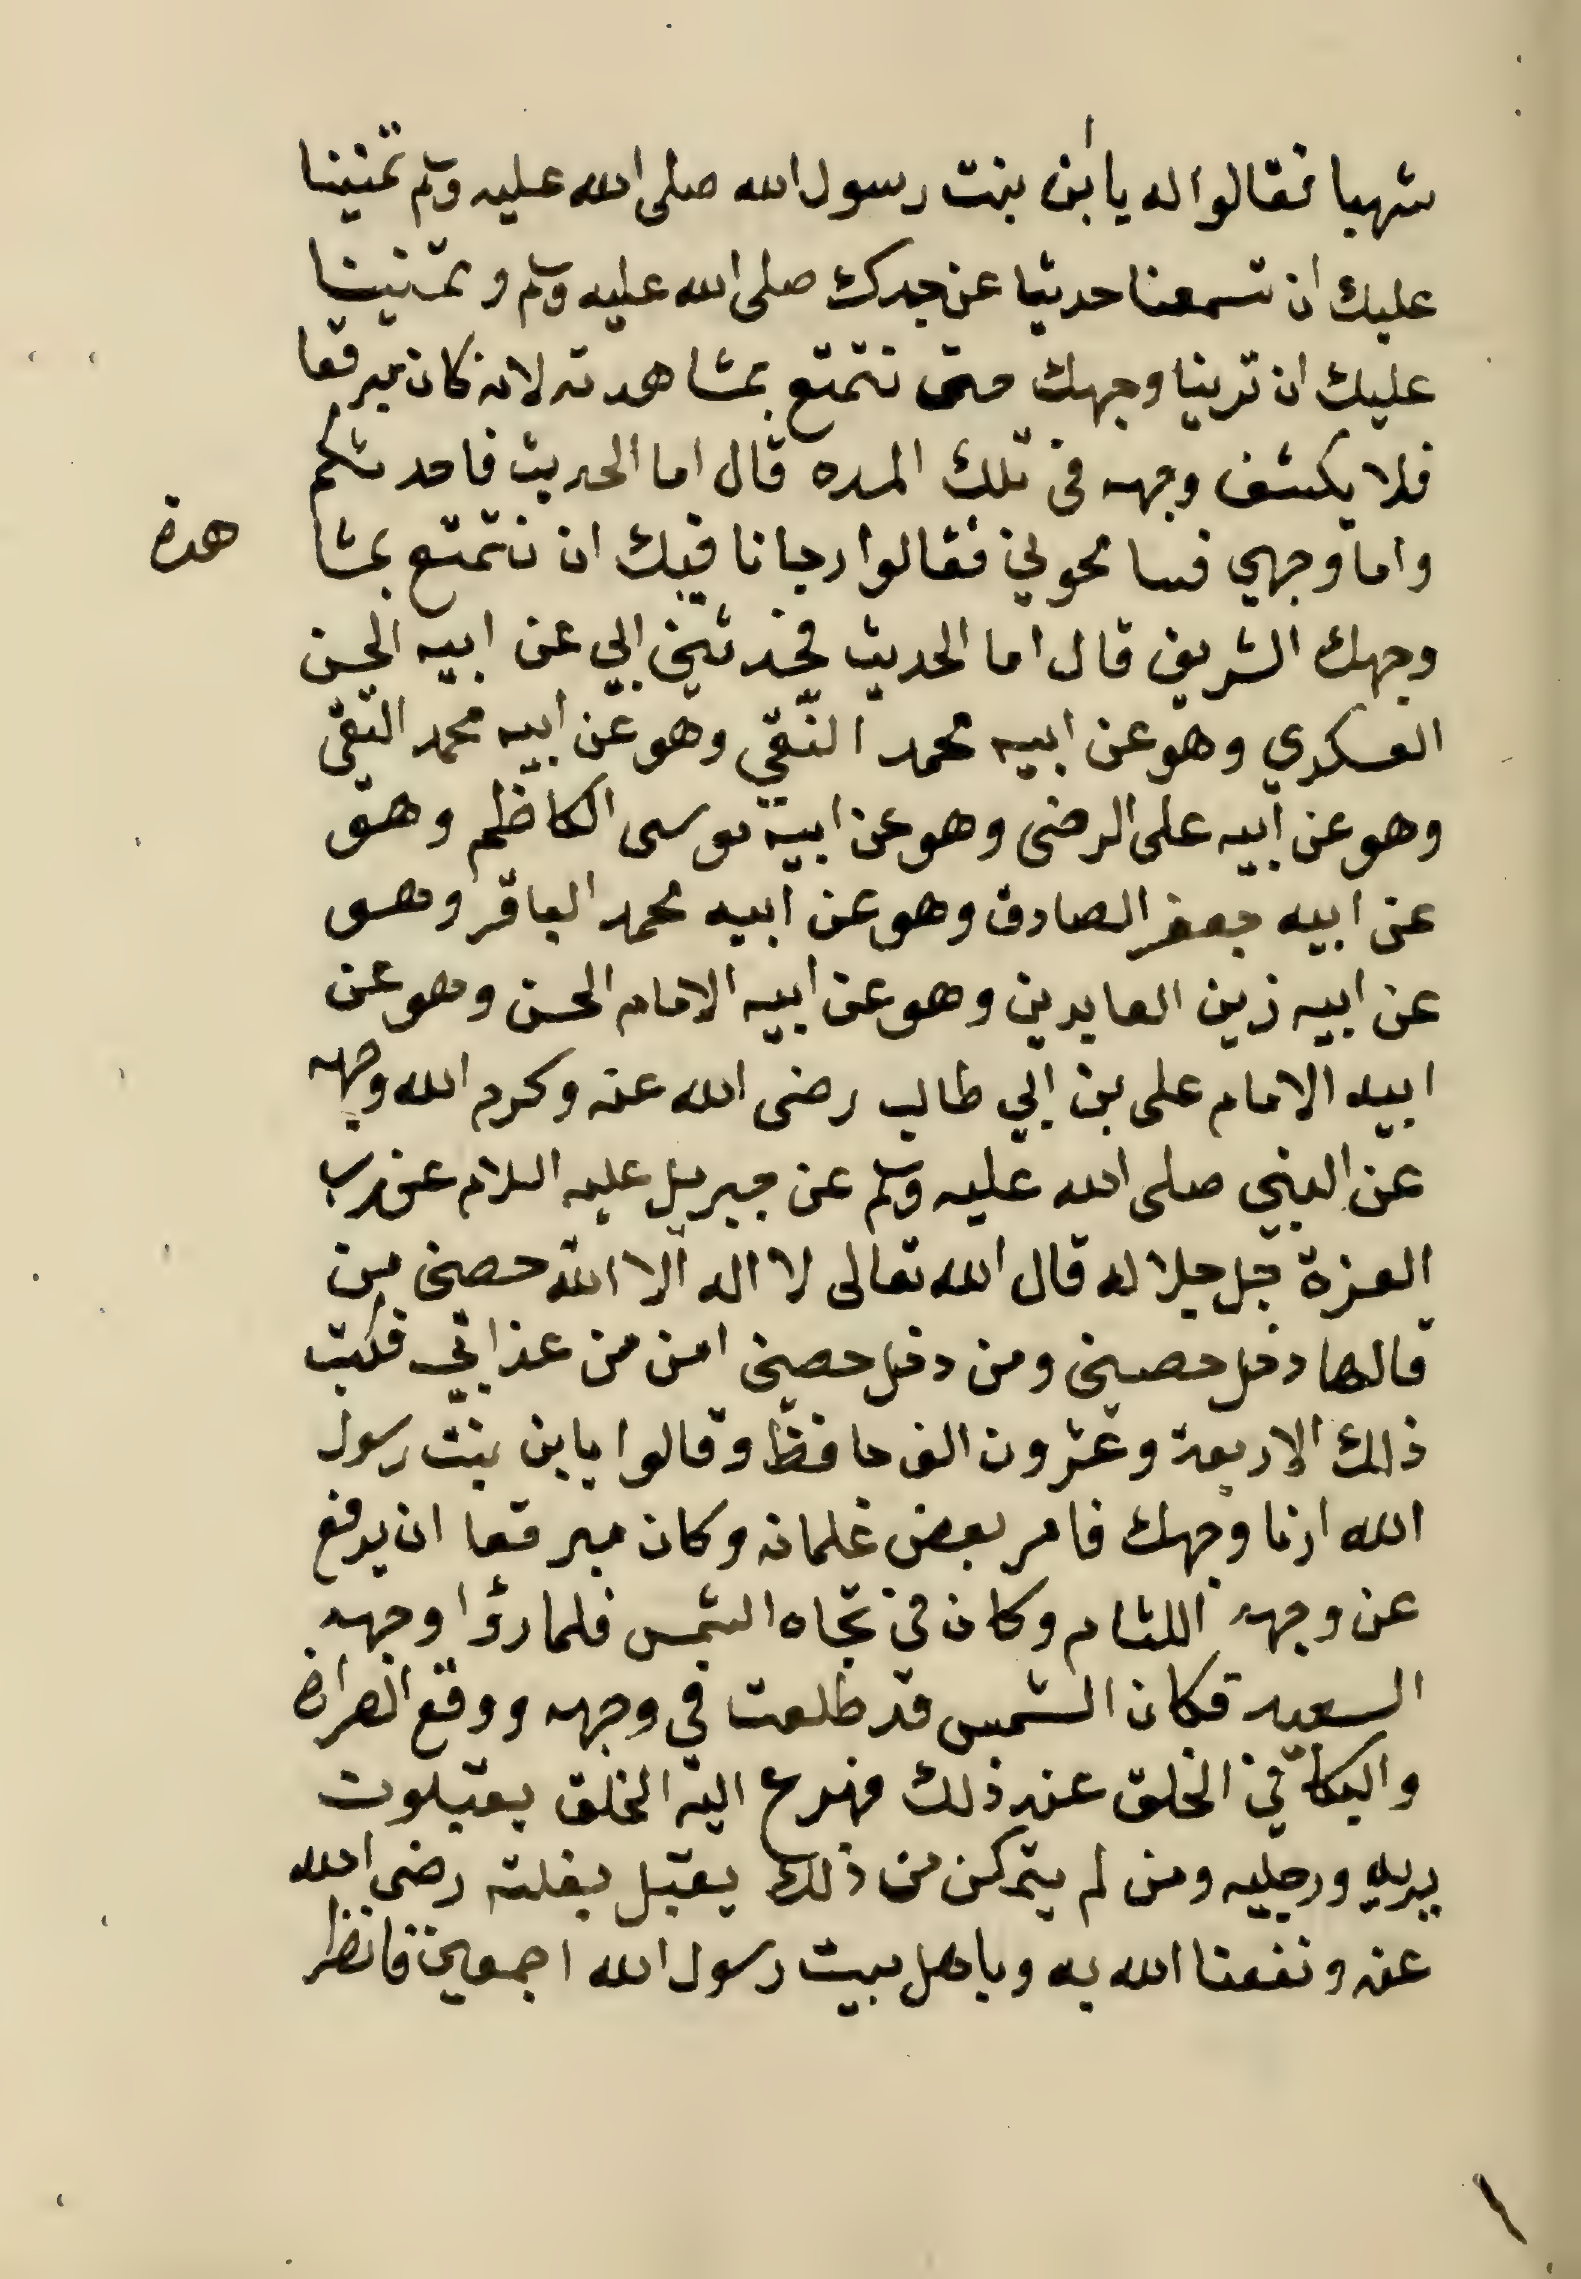 شهبا فقالوا له يا أبن بنت رسول الله صلى الله عليه وسلم تمنينا
عليك أن تسمعنا حديثا عن جدك صلى الله عليه وسلم وتمنينا
عليك ان ترينا وجهك حتى نتمتع بمشاهدته لانه كان مبرقعا
فلا يكشف وجهه في تلك المده قال اما الحديث فاحدثكم
واما وجهي فسامحوني فقالوا رجانا فيك ان نتمتع بمشا هدة
وجهك الشريف قال اما الحديث فحدثني ابي عن ابيه الحسن
العسكري وهو عن ابيه محمد النقي وهو عن أبيه محمد التقي
وهو عن أبيه على الرضى وهو عن ابيه موسى الكاظم وهو
عن ابيه جعفر الصادق وهو عن ابيه محمد الباقر وهو
عن ابيه زين العابدين وهو عن أبيه الامام الحسن وهو عن
ابيه الامام على بن ابي طالب رضى الله عنه وكرم الله وجهه
عن النبي صلى الله عليه وسلم عن جبريل عليه السلام عن رب
العزة جل جلاله قال الله تعالى لا اله الا الله حصنى من
قالها دخل حصنى ومن دخل حصنى امن من عذابي فكتب
ذلك الاربعة وعشرون الف حافظ وقالوا يابن بنت رسول
الله ارنا وجهك فامر بعض غلمانه وكان مبرقعا ان يرفع
عن وجهه اللثام وكان في تجاه الشمس فلما رؤا وجهه
السعيد فكان الشمس قد طلعت في وجهه ووقع الصراخ
والبكا في الخلق عند ذلك فهرع اليه الخلق يقبلون
يديه ورجليه ومن لم يتمكن من ذلك يقبل بغلته رضى الله
عنه ونفعنا الله به وباهل بيت رسول الله اجمعين فانظر